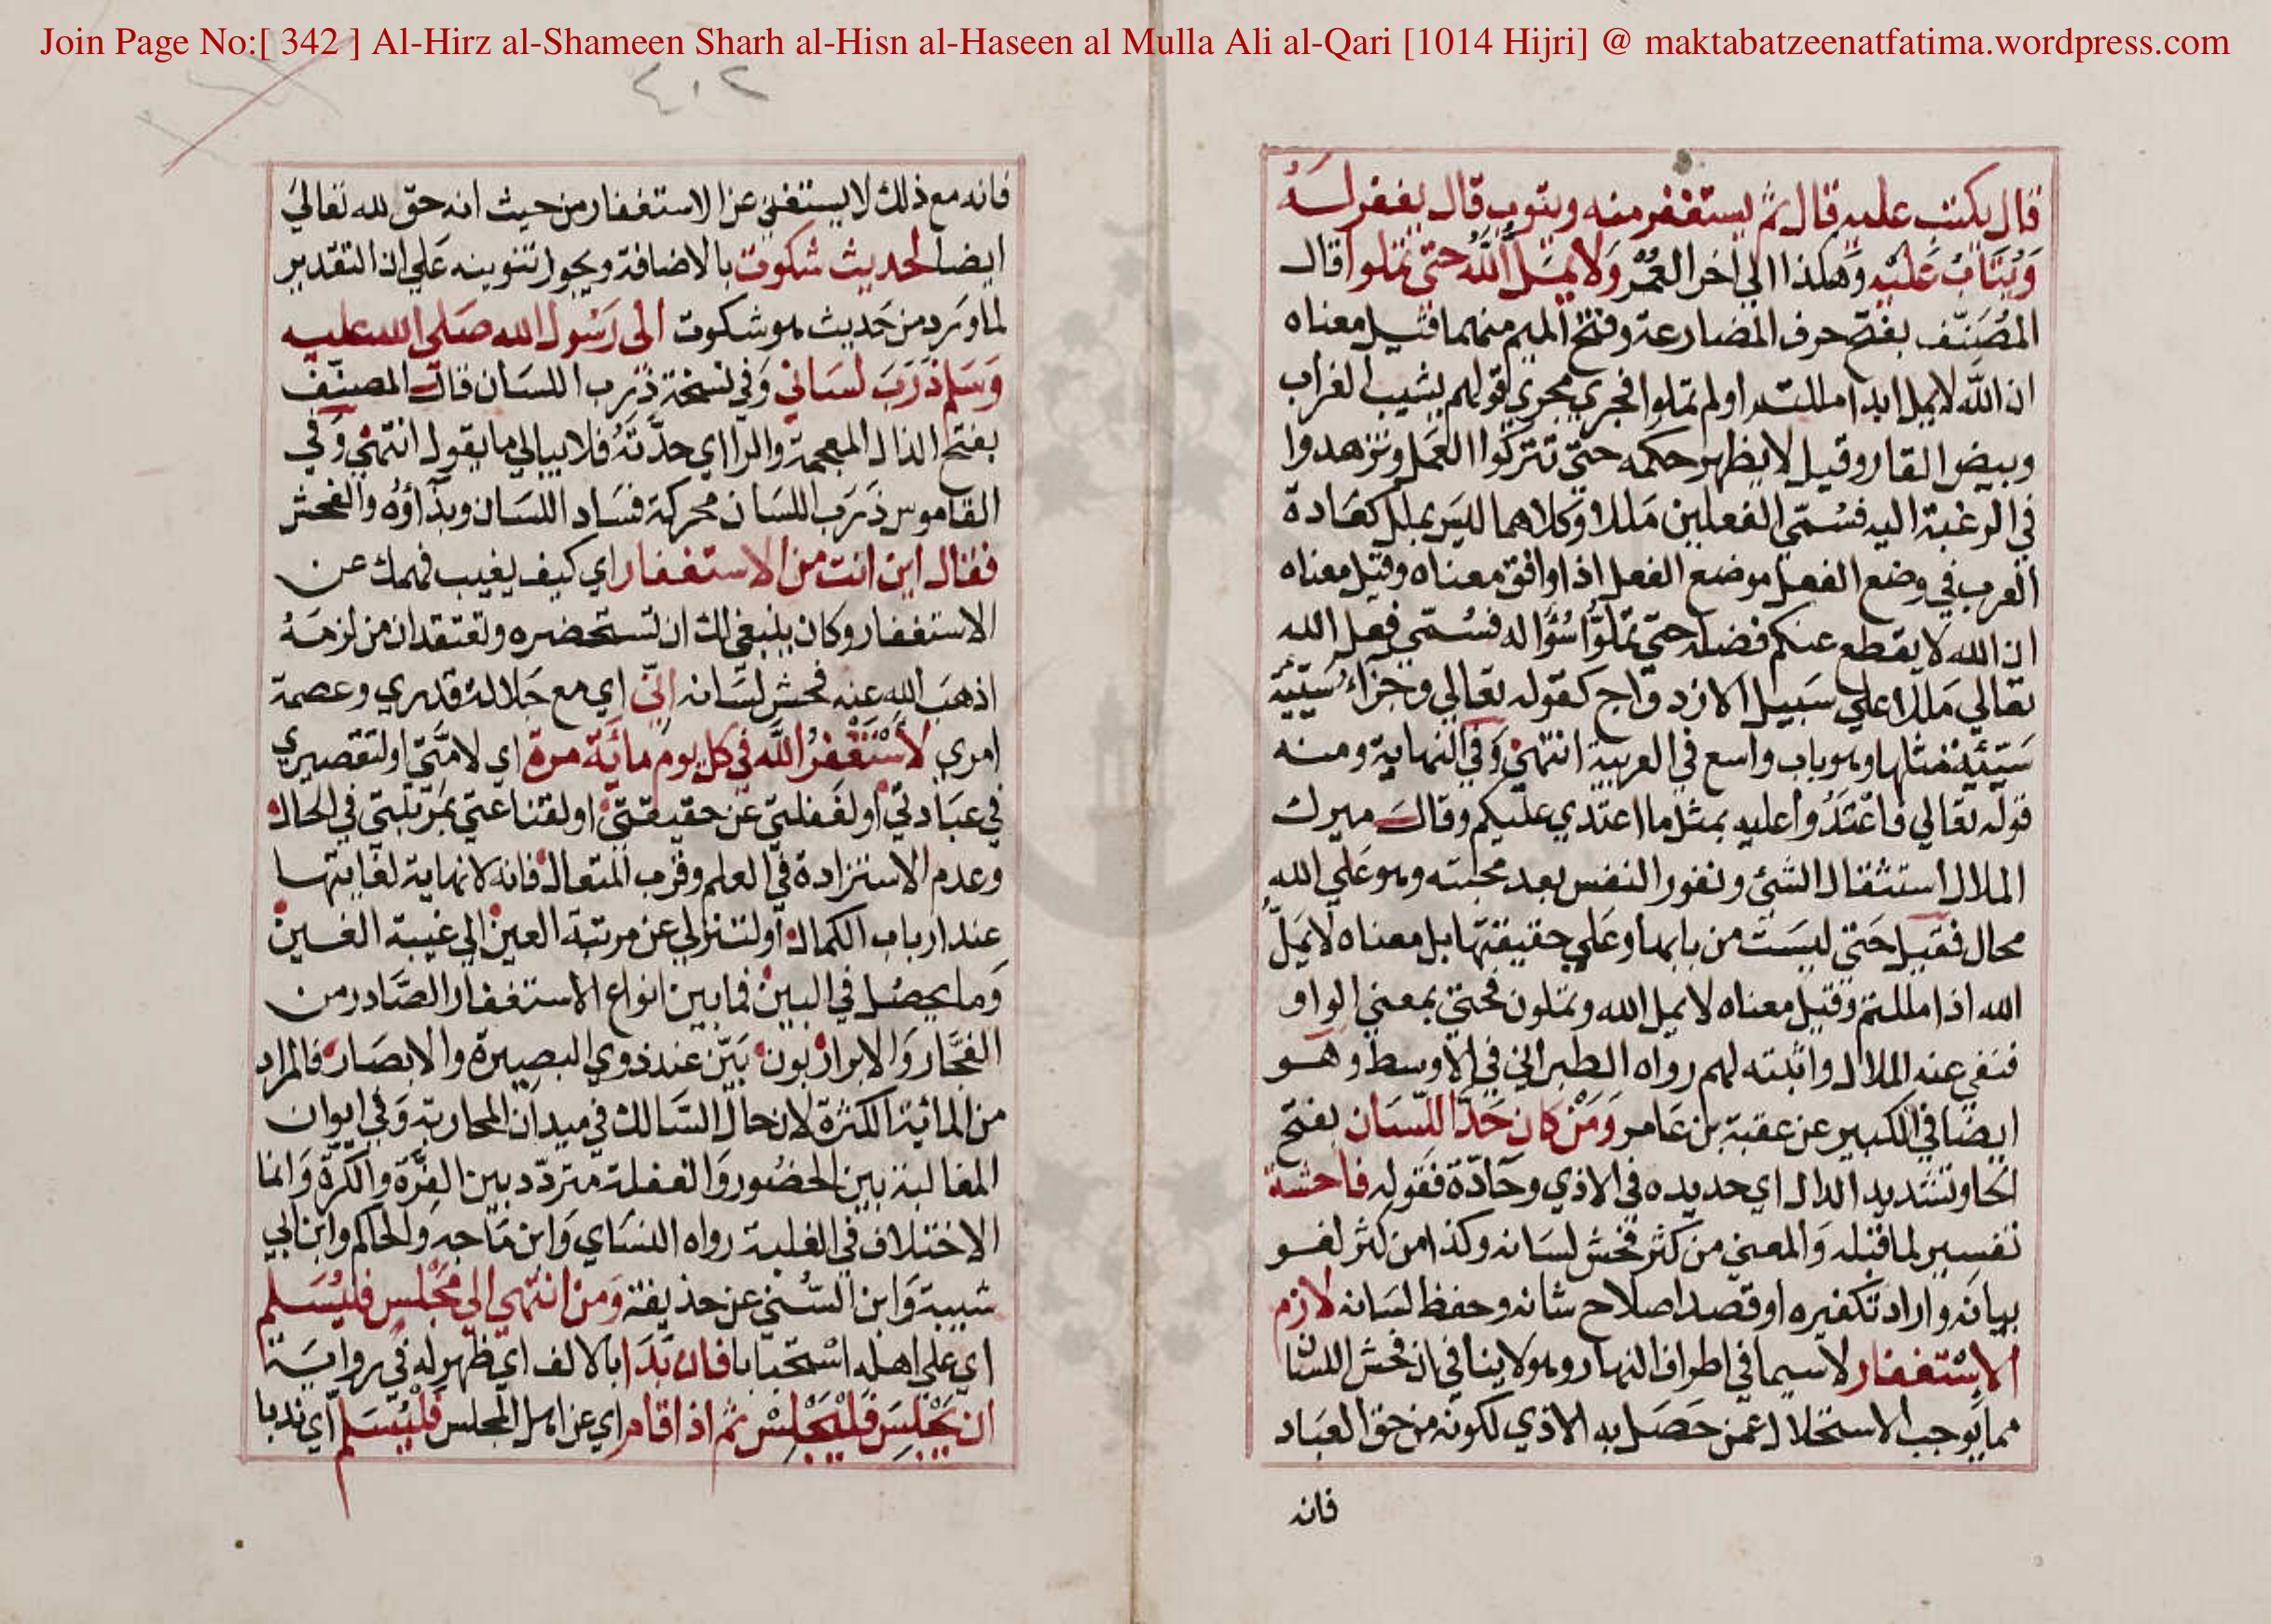 Join Page No:[ 342 ] Al-Hirz al-Shameen Sharh al-Hisn al-Haseen al Mulla Ali al-Qari [1014 Hijri] @ maktabatzeenatfatima.wordpress.com
قال يكتب عليه قال ثم يستغفر منه ويتوب قال يغفر له
وَيُتَابُ عَلَيْهِ وَهكذا الي اخر العُمُر وَلا يَمَلُّ اللهُ حتى تملوا قال
المُصَنّف بفتح حرف المضارعة وفتح الميم منهما قيل معناه
ان الله لا يمل ابدا مللتم او لم تملوا فجري مجري قولهم يشيب الغراب
وبيض القار وقيل لا يظهر حكمه حتى تتركوا العمل وتزهدوا
في الرغبة اليه فسُمّي الفعلين مَللا وكلاهما لليس بملل كعَادة
العرب في وضع الفعل موضع الفعل اذا وافق معناه وقيل معناه
ان الله لا يقطع عنكم فضله حتى تملوا سُؤاله فسُمّي فعل الله
تعالي مَللا علي سَبيل الازدواج كقوله تعالي وجزاءُ سَيّئةٍ
سَيّئةٌ مثلها وهو باب واسع في العربية انتهى وَفي النهاية ومنه
قوله تعالي فاعْتَدُوا عليه بمثل ما اعتدي عليكم وقال ميرك
الملال استثقال الشئ ونفور النفس بعد محبته وهو عَلي الله
محال فقيل حَتى ليسَت من بابها وعَلي حقيقتها بل معناه لا يَمَلّ
الله اذا مللتم وقيل معناه لا يمل الله وتملون فحتى بمعني الواو
فنفي عنه الملال واثبته لهم رواه الطبراني في الأوسط وهو
ايضا في الكبير عن عقبة بن عَامر وَمَنْ كان حَدّ اللّسَان بفتح
الحا وتشديد الدال اي حديده في الاذي وحَادّة فقوله فاحشة
تفسير لما قبله وَالمعني من كثر فحش لسَانه وكذا من كثر لغو
بيانه واراد تكفيره او قصد اصلاح شانه وحفظ لسَانه لازم
الاسْتغفار لاسيما في اطراف النهار وهو لا ينافي ان فحش اللسان
مما يوجب الاستحلال عمن حَصَل به الاذي لكونه من حق العبَاد
فانه
٤٠٢
فانه مع ذلك لا يستغني عن الاستغفار من حيث انه حق لله تعالي
ايضا لحديث شكوت بالاضافة ويجوز تنوينه عَلي ان التقدير
لما وَرد من حَديث هو شكوت الى رَسُول الله صَلى الله عليه
وَسَلم ذرَبَ لسَاني وَفي نسخة ذرب اللسَان قال المصنّف
بفتح الذال المعجمة والرا اي حدّتَهُ فلا يبالي ما يقول انتهى وَفي
القاموس ذرَب اللسَان محركة فسَاد اللسَان وبذاؤه والفحش
فقال اين انت من الاستغفار اي كيف يغيب فهمك عن
الاستغفار وكان ينبغي لك ان تستحضره وتعتقد ان من لزمَهُ
اذهبَ الله عنه فحش لسَانه إنّي اي مع جَلالة قدري وعصمة
امري لأسْتَغْفرُ الله في كل يوم مائة مرة اي لامّتي او لتقصيري
في عبَادتي او لغفلتي عن حقيقتي او لقناعتي بمَرتبتي في الحال
وعدم الاستزادة في العلم وقرب المتعال فانه لا نهاية لغايتها
عند ارباب الكمال او لتنزلي عن مرتبة العين الي غيبة الغين
وَما يحصُل في البين فما بين انواع الاستغفار الصَّادر من
الفجَّار وَالابرار بون بَيّن عند ذوي البصيرة والابصَار فالمراد
من المائة الكثرة لان حال السَّالك في ميدان المحاربة وَفي ايوان
المغالبة بين الحضُور وَالغفلة متردّد بين الفَرَّة والكرّة وَانما
الاختلاف في الغلبة رواه النسَاي وَابن مَاجه وَالحاكم وابن ابي
شيبة وَابن السُّني عن حذيفة وَمن انتهي الي مَجْلس فليُسَلم
اي علي اهله اسْتحبَابا فان بَدَا بالالف اي ظهر له في رواية
ان يَجْلِسَ فَلْيَجْلِسْ ثم اذا قام اي عن اهل المجلس فَلْيُسَلم اي ندبا